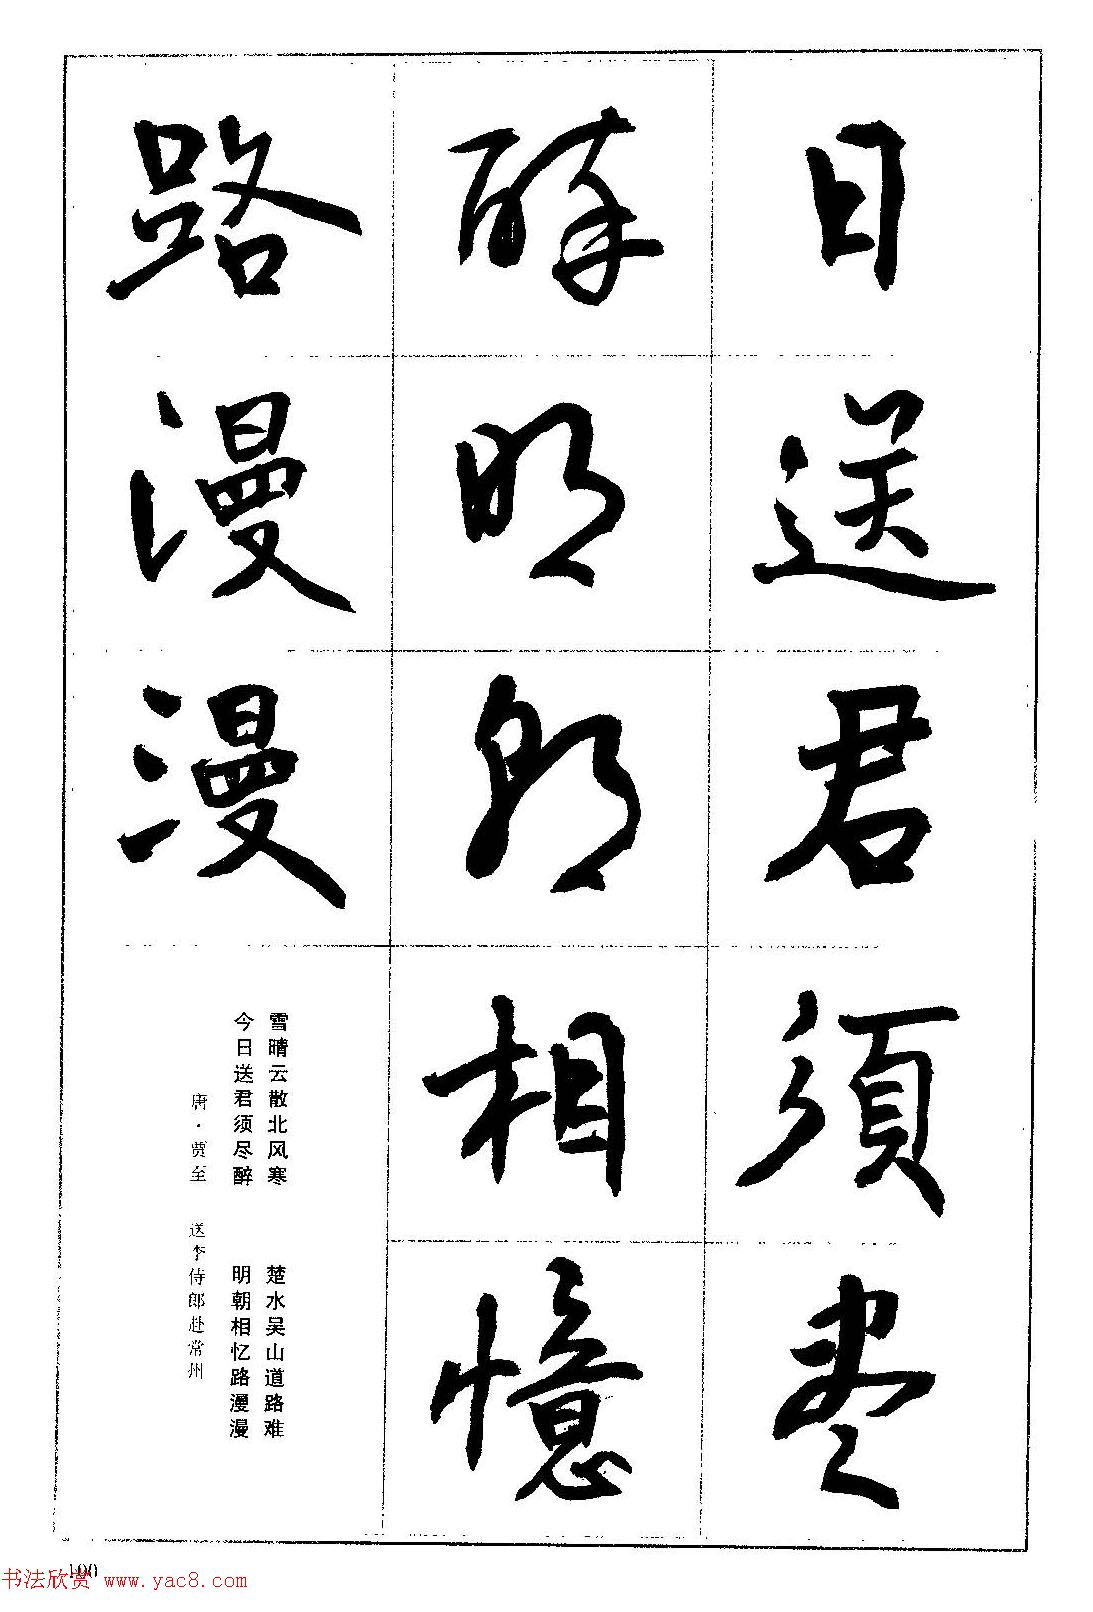 日送君須盡
醉明朝相憶
路漫漫
雪晴云散北风寒　楚水吴山道路难
今日送君须尽醉　明朝相忆路漫漫
唐·贾至　送李侍郎赴常州
100
书法欣赏 www.yac8.com